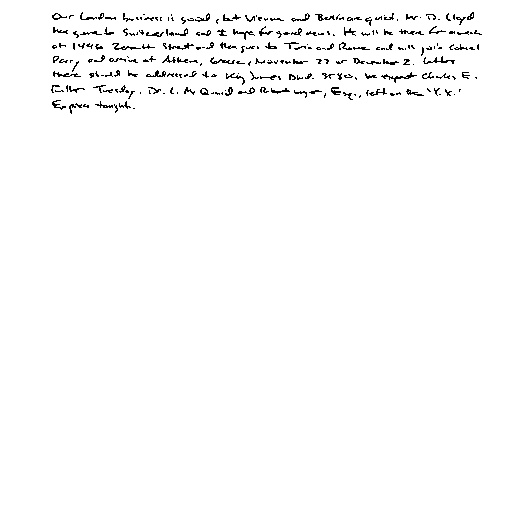 Our London business is good, but Vienna and Berlin are quiet. Mr. D. Lloyd
has gone to Switzerland and I hope for good news. He will be there for a week
at 1496 Zermott Street and then goes to Turin and Rome and will join Colonel
Parry and arrive at Athens, Greece, November 27 or December 2. Letters
there should be addressed to King James Blvd. 3580. We expect Charles E.
Fuller Tuesday. Dr. L. McQuaid and Robert Unger, Esq., left on the "Y.X."
Express tonight.